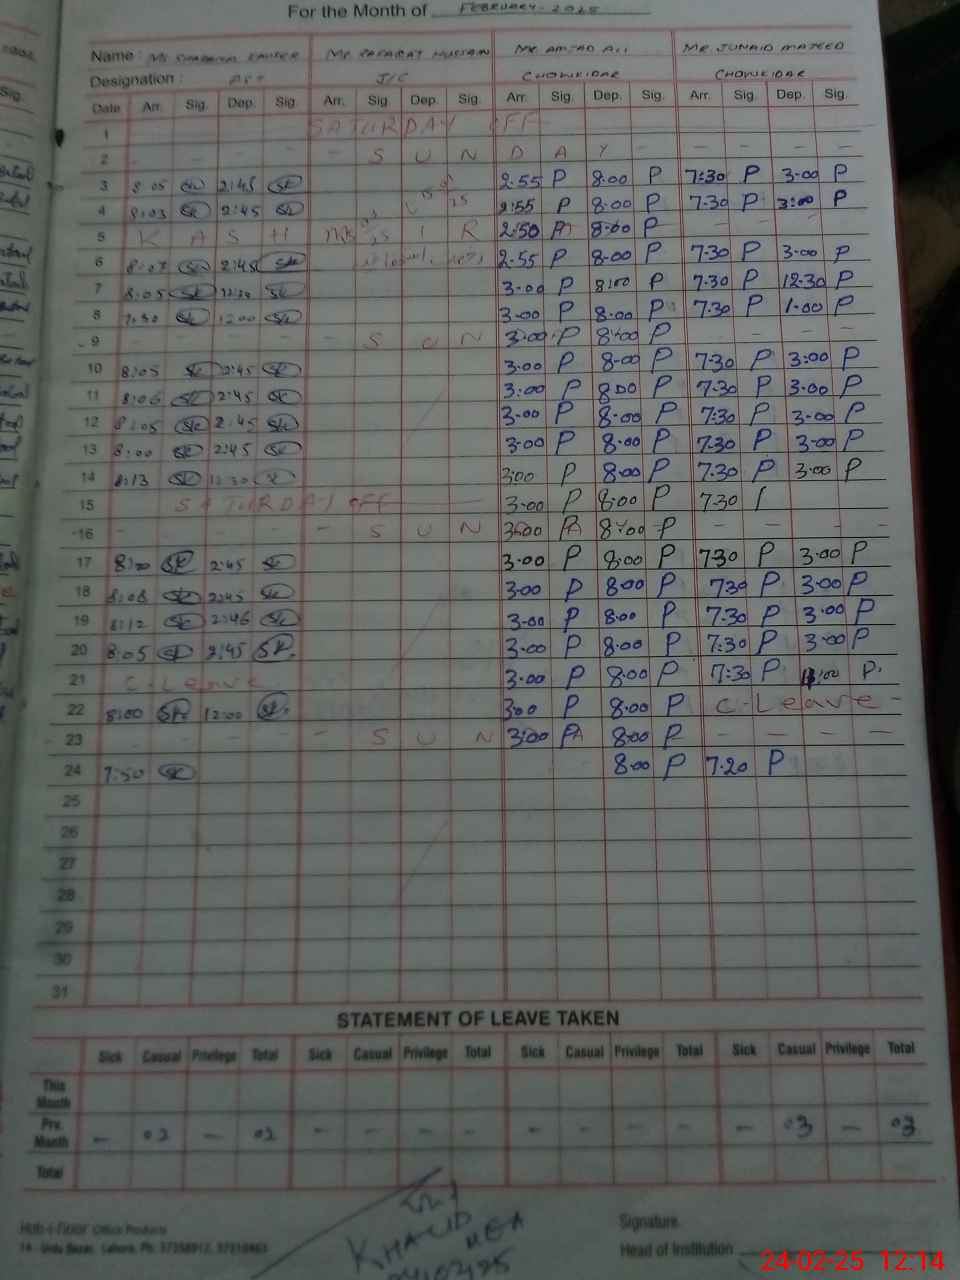 For the Month of FEBRUARY-2025
Name : Ms SHABANA KAUSER Mr. RAFAQAT HUSSAIN Mr AMJAD ALI Mr JUNAID MAJEED
Designation : J/C CHOWKIDAR CHOWKIDAR
Date Arr. Sig. Dep. Sig. Arr. Sig. Dep. Sig. Arr. Sig. Dep. Sig. Arr. Sig. Dep. Sig.
1 SATURDAY OFF
2 - - - - - S U N D A Y - - - - -
3 8:05 SK 2:45 SK 2.55 P 8.00 P 7:30 P 3.00 P
4 8:03 SK 2:45 SK 2:55 P 8.00 P 7.30 P 3:00 P
5 K A S H M I R 2:50 P 8:00 P - - - -
6 8:07 SK 2:45 SK 2.55 P 8.00 P 7.30 P 3.00 P
7 8:05 SK 12:30 SK 3.00 P 8:00 P 7.30 P 12.30 P
8 7:30 SK 12:00 SK 3.00 P 8.00 P 7.30 P 1.00 P
9 - - - - - S U N 3.00 P 8:00 P - - - -
10 8:05 SK 2:45 SK 3.00 P 8.00 P 7.30 P 3:00 P
11 8:06 SK 2:45 SK 3:00 P 8:00 P 7.30 P 3.00 P
12 8:05 SK 2:45 SK 3.00 P 8.00 P 7.30 P 3.00 P
13 8:00 SK 2:45 SK 3.00 P 8.00 P 7.30 P 3.00 P
14 8:13 SK 12:30 SK 3:00 P 8.00 P 7.30 P 3.00 P
15 SATURDAY OFF 3.00 P 8:00 P 7.30
16 - - - - - S U N 3:00 P 8:00 P - - - -
17 8:00 SK 2:45 SK 3.00 P 8:00 P 7.30 P 3.00 P
18 8:08 SK 2:45 SK 3.00 P 8:00 P 7.30 P 3:00 P
19 8:12 SK 2:46 SK 3.00 P 8.00 P 7.30 P 3.00 P
20 8:05 SK 2:45 SK. 3.00 P 8.00 P 7:30 P 3.00 P
21 C-Leave 3.00 P 8.00 P 7:30 P :00 P.
22 8:00 SK 12:00 SK. 3:00 P 8.00 P C-Leave -
23 - - - - - S U N 3:00 P 8.00 P - - - -
24 7:50 SK 8.00 P 7.20 P
25
26
27
28
29
30
31
STATEMENT OF LEAVE TAKEN
Sick Casual Privilege Total Sick Casual Privilege Total Sick Casual Privilege Total Sick Casual Privilege Total
This Month
Prv. Month - 02 - 02 - - - - - - - - - 03 - 03
Total
KHALID
MEA
24/02/25
Office Products
14 - Urdu Bazar, Lahore, Ph: 37358912, 37210463
Signature
Head of Institution
24-02-25 12:14